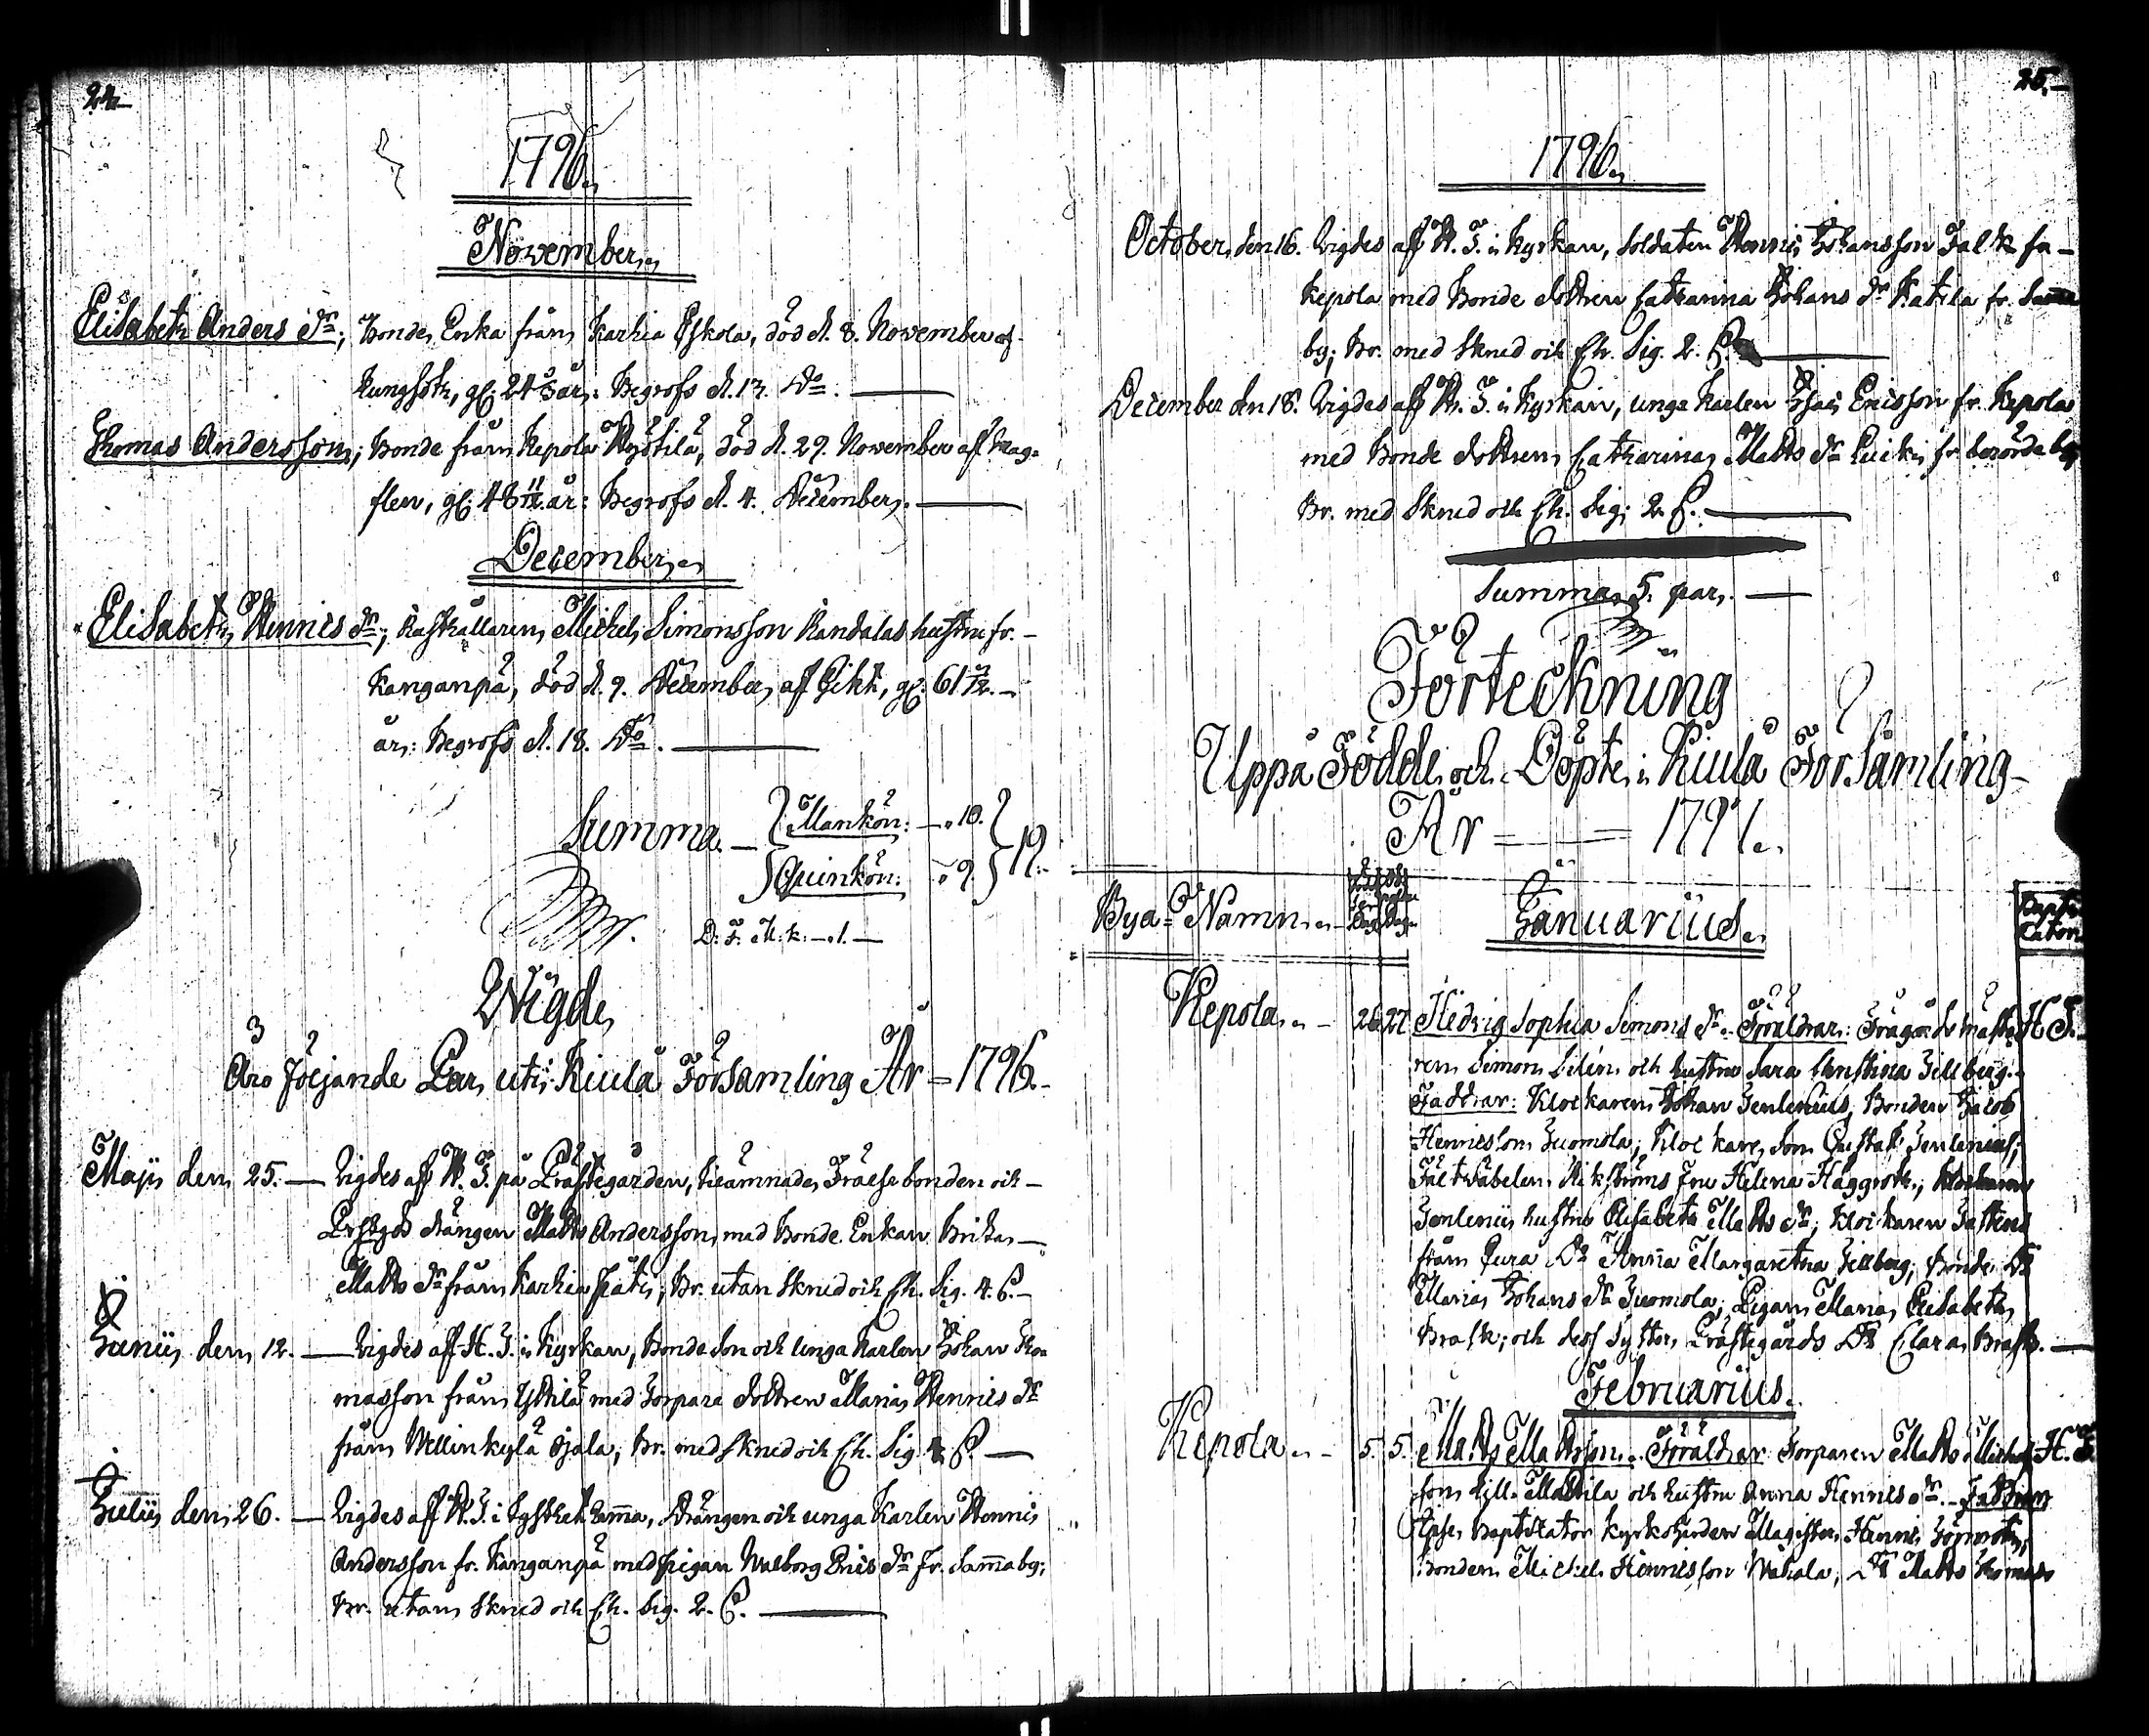 24.
1796.
November.
Elisabeth Anders dr; Bonde Enka från Karhia Eskola, död d. 8. November af
Lungsot, gl: 24 år: Begrofs d. 13. Do.
Thomas Andersson; Bonde från Kepola Knöstilä, död d. 29. November af Slag-
flen, gl: 48 11/12 år: Begrofs d. 4. December.
December.
Elisabeth Hennics dr; Rusthållaren Michel Simonsson Randalas hustru fr.
Kanganpä, död d. 9. December af Gikt, gl: 61 år: Begrofs d. 18. Do.
Summa { Mankön: 10. } 19.
Quinkön: 9.
D: F: M: k: 1.
Wigde
äro följande Par uti Kiula Församling År 1796.
Maji den 25. Vigdes af H. I. på Prästegården, Frälsebonden och
drängen Matts Andersson med Bonde Enkan Brita
Matts dr från Karhia Pätis; Br. utan Skrud och Eh. Sig. 4. ß.
Junii den 12. Vigdes af H. I. i Kyrkan, Bonde Son och Unga Karlen Johan Tho-
masson från Yttilä med Torpare dottren Maria Hennics dr
från Mellinkylä Ojala; Br. med Skrud och Eh. Sig. ß.
Julii den 26. Vigdes af H. I. i Drängen och unga Karlen Hennric
Andersson fr. Kanganpä med Pigan Walborg Erics dr fr. Samma by;
Br. utan Skrud och Eh. Sig. 2. ß.
25.
1796.
October den 16. Vigdes af H. I. i Kyrkan, Soldaten Hennric Johansson Falk fr.
Kepola med Bonde dottren Catharina Johans dr Katila fr. Samma
by; Br. med Skrud och Eh. Sig. 2. ß.
December den 18. Vigdes af H. I. i Kyrkan, unga Karlen Isac Ericsson fr. Kepola
med Bonde dottren Catharina Matts dr fr. berörde by
Br. med Skrud och Eh. Sig: 2. ß.
Summa 5. par.
Förteckning
Uppå Födde och Döpte i Kiula Församling
År 1797.
Bya-Namn. Januarius.
Kepola. 26. 27. Hedvig Sophia Simons dr. Föräldrar: Trägårdsmästa- H. I.
ren Simon Selin och hustru Sara Christina Zillberg.
Faddrar: Klockaren Johan Jenlenius, Bonden Jacob
Hennicsson Juomola; Klockare Son Gustaf Jenlenius;
Fältväbelen Wikströms Fru Helena Häggroth; Klockaren
Jenlenii hustru Elisabeta Matts dr; Klockaren
från Eura Do Anna Margaretha Zillberg; Bonde Do
Maria Johans dr Juomola; Pigan Maria Elisabeta
Brask; och dess Syster, Prästegårds Do Clara Brask.
Februarius.
Kepola. 5. 5. Matts Mattsson. Föräldrar Torparen Matts Michels- H. I.
son Mattila och hustru Anna Hennics dr. Faddrar
Ipse Baptisator Kyrkoherden Magister Hennric
Bonden Michel Hennicsson Wahala, Do Matts Thomas